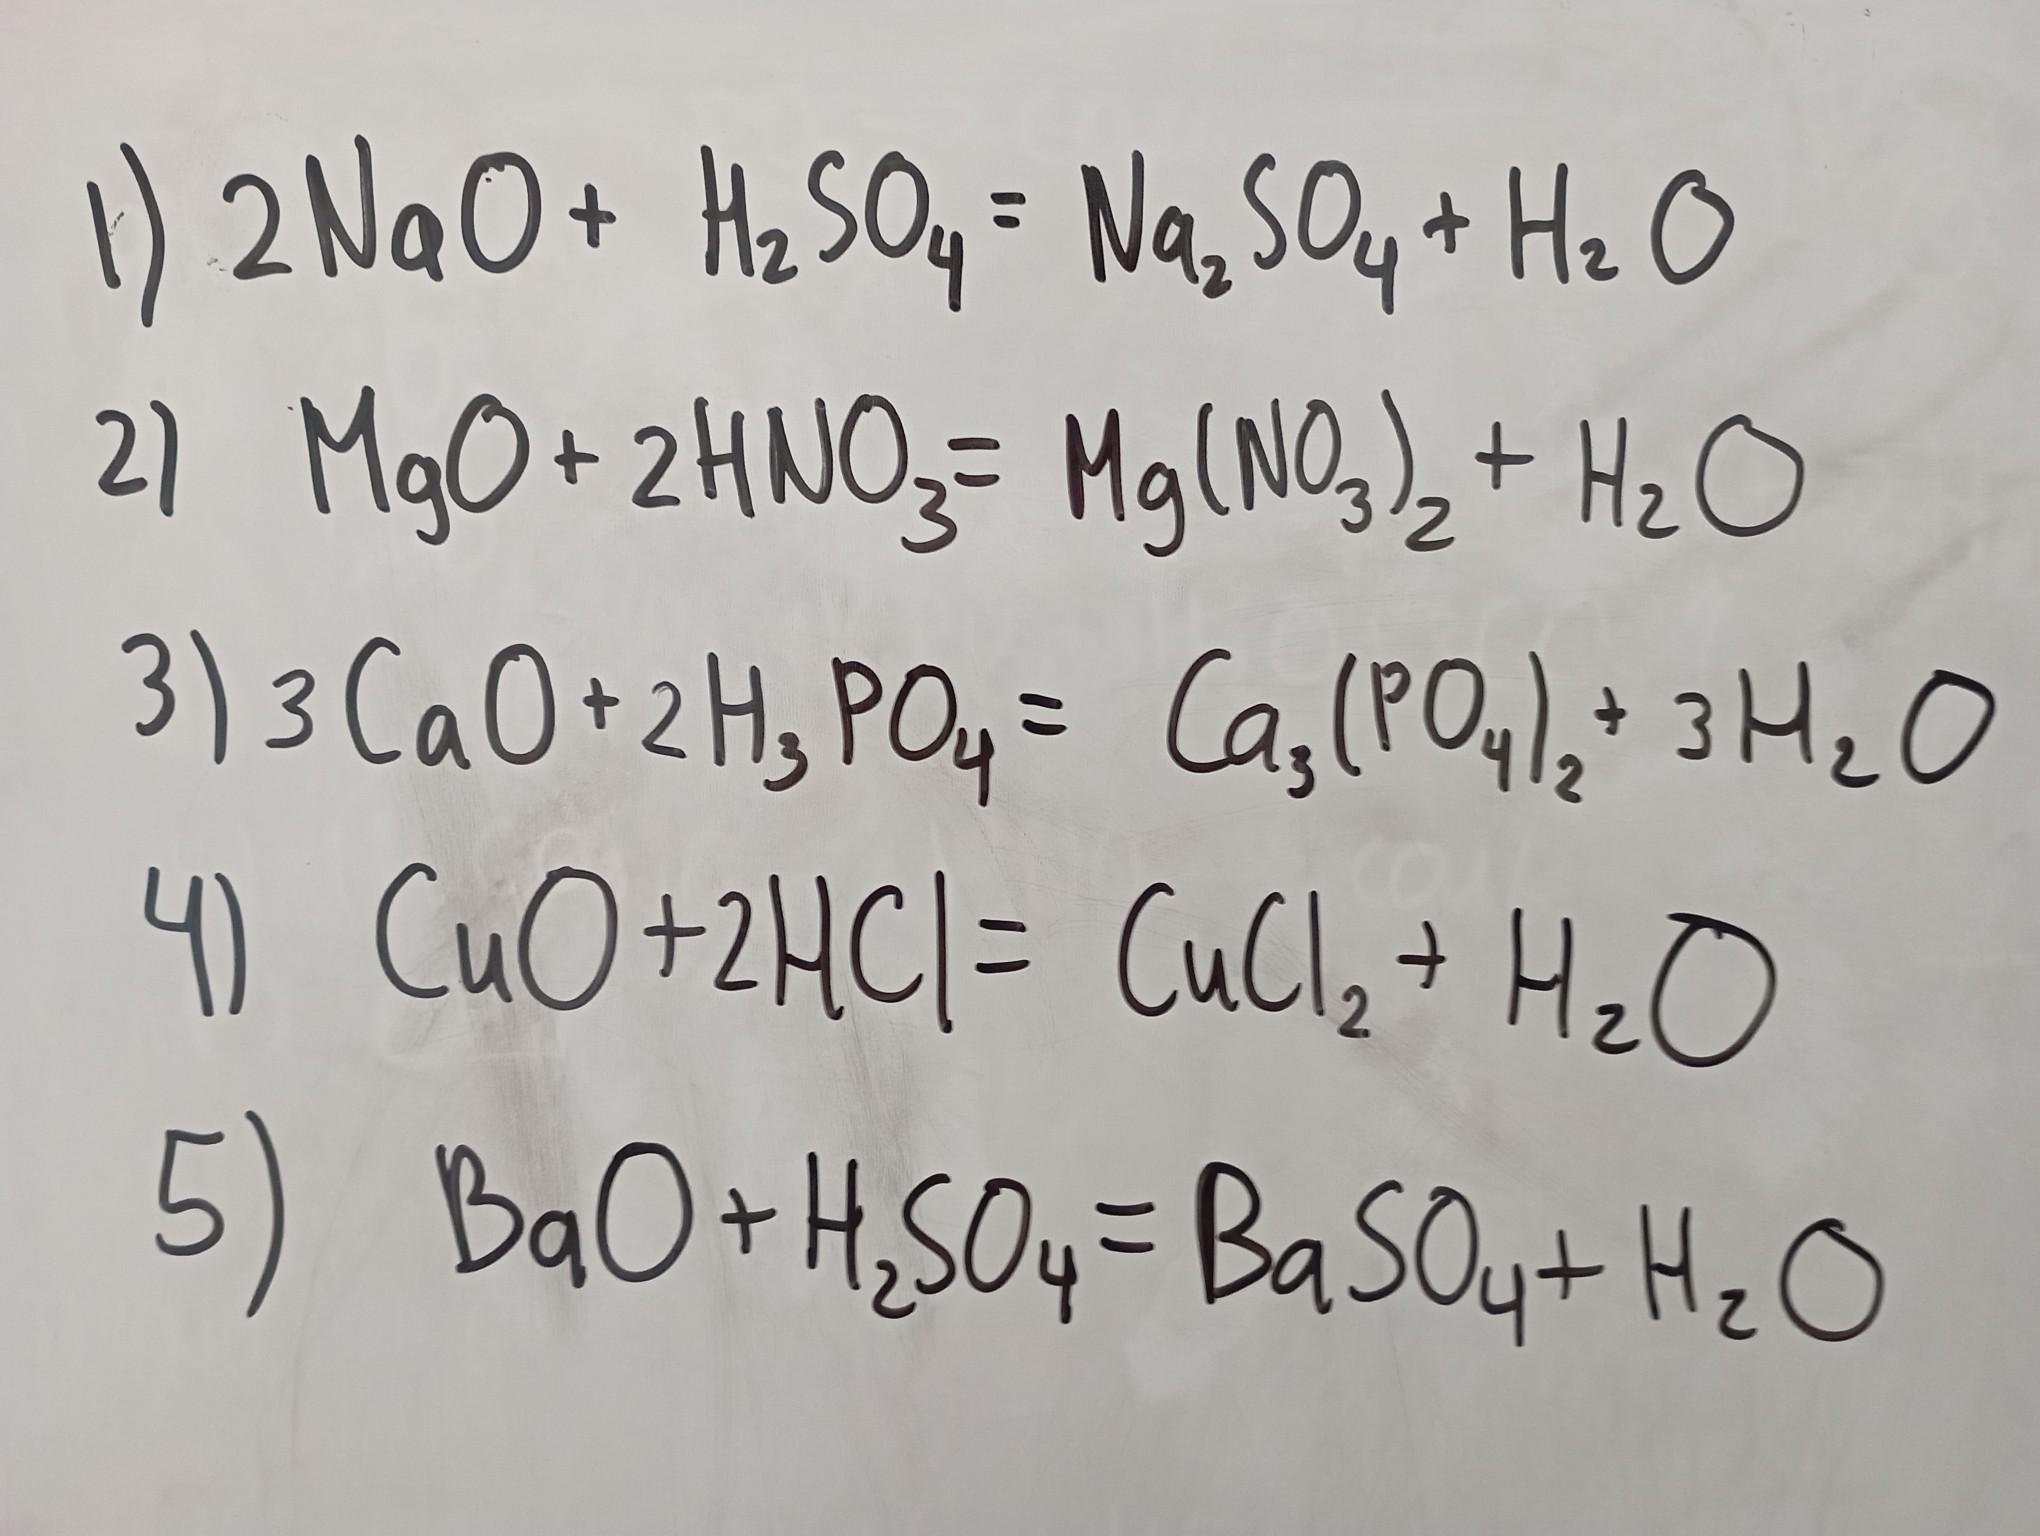 1) 2NaO + H₂SO₄ = Na₂SO₄ + H₂O
2) MgO + 2HNO₃ = Mg(NO₃)₂ + H₂O
3) 3CaO + 2H₃PO₄ = Ca₃(PO₄)₂ + 3H₂O
4) CuO + 2HCl = CuCl₂ + H₂O
5) BaO + H₂SO₄ = BaSO₄ + H₂O